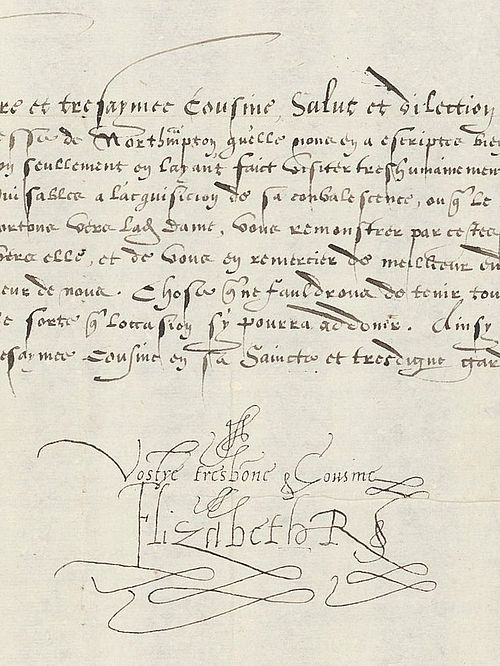 re et tresaymee Cousine, Salut et dilection
esse de Northampton, quelle nous en a escriptes bie
on seullement en layant faict visiter treshumainemen
ui sables a lacquisicion de sa convalescence, ou q̃ le
ortons vers lad Dame, vous remonstrer par ces tes
vers elle, et de vous en remercier de meilleur end
eur de nous. Chose q̃ ne fauldrons de tenir tou
e sorte q̃ loccasion sy pourra addonner. Ainsy
esaymee Cousine en sa Saincte et tresdigne gar
Vostre tresbone Cousine
Elizabeth R